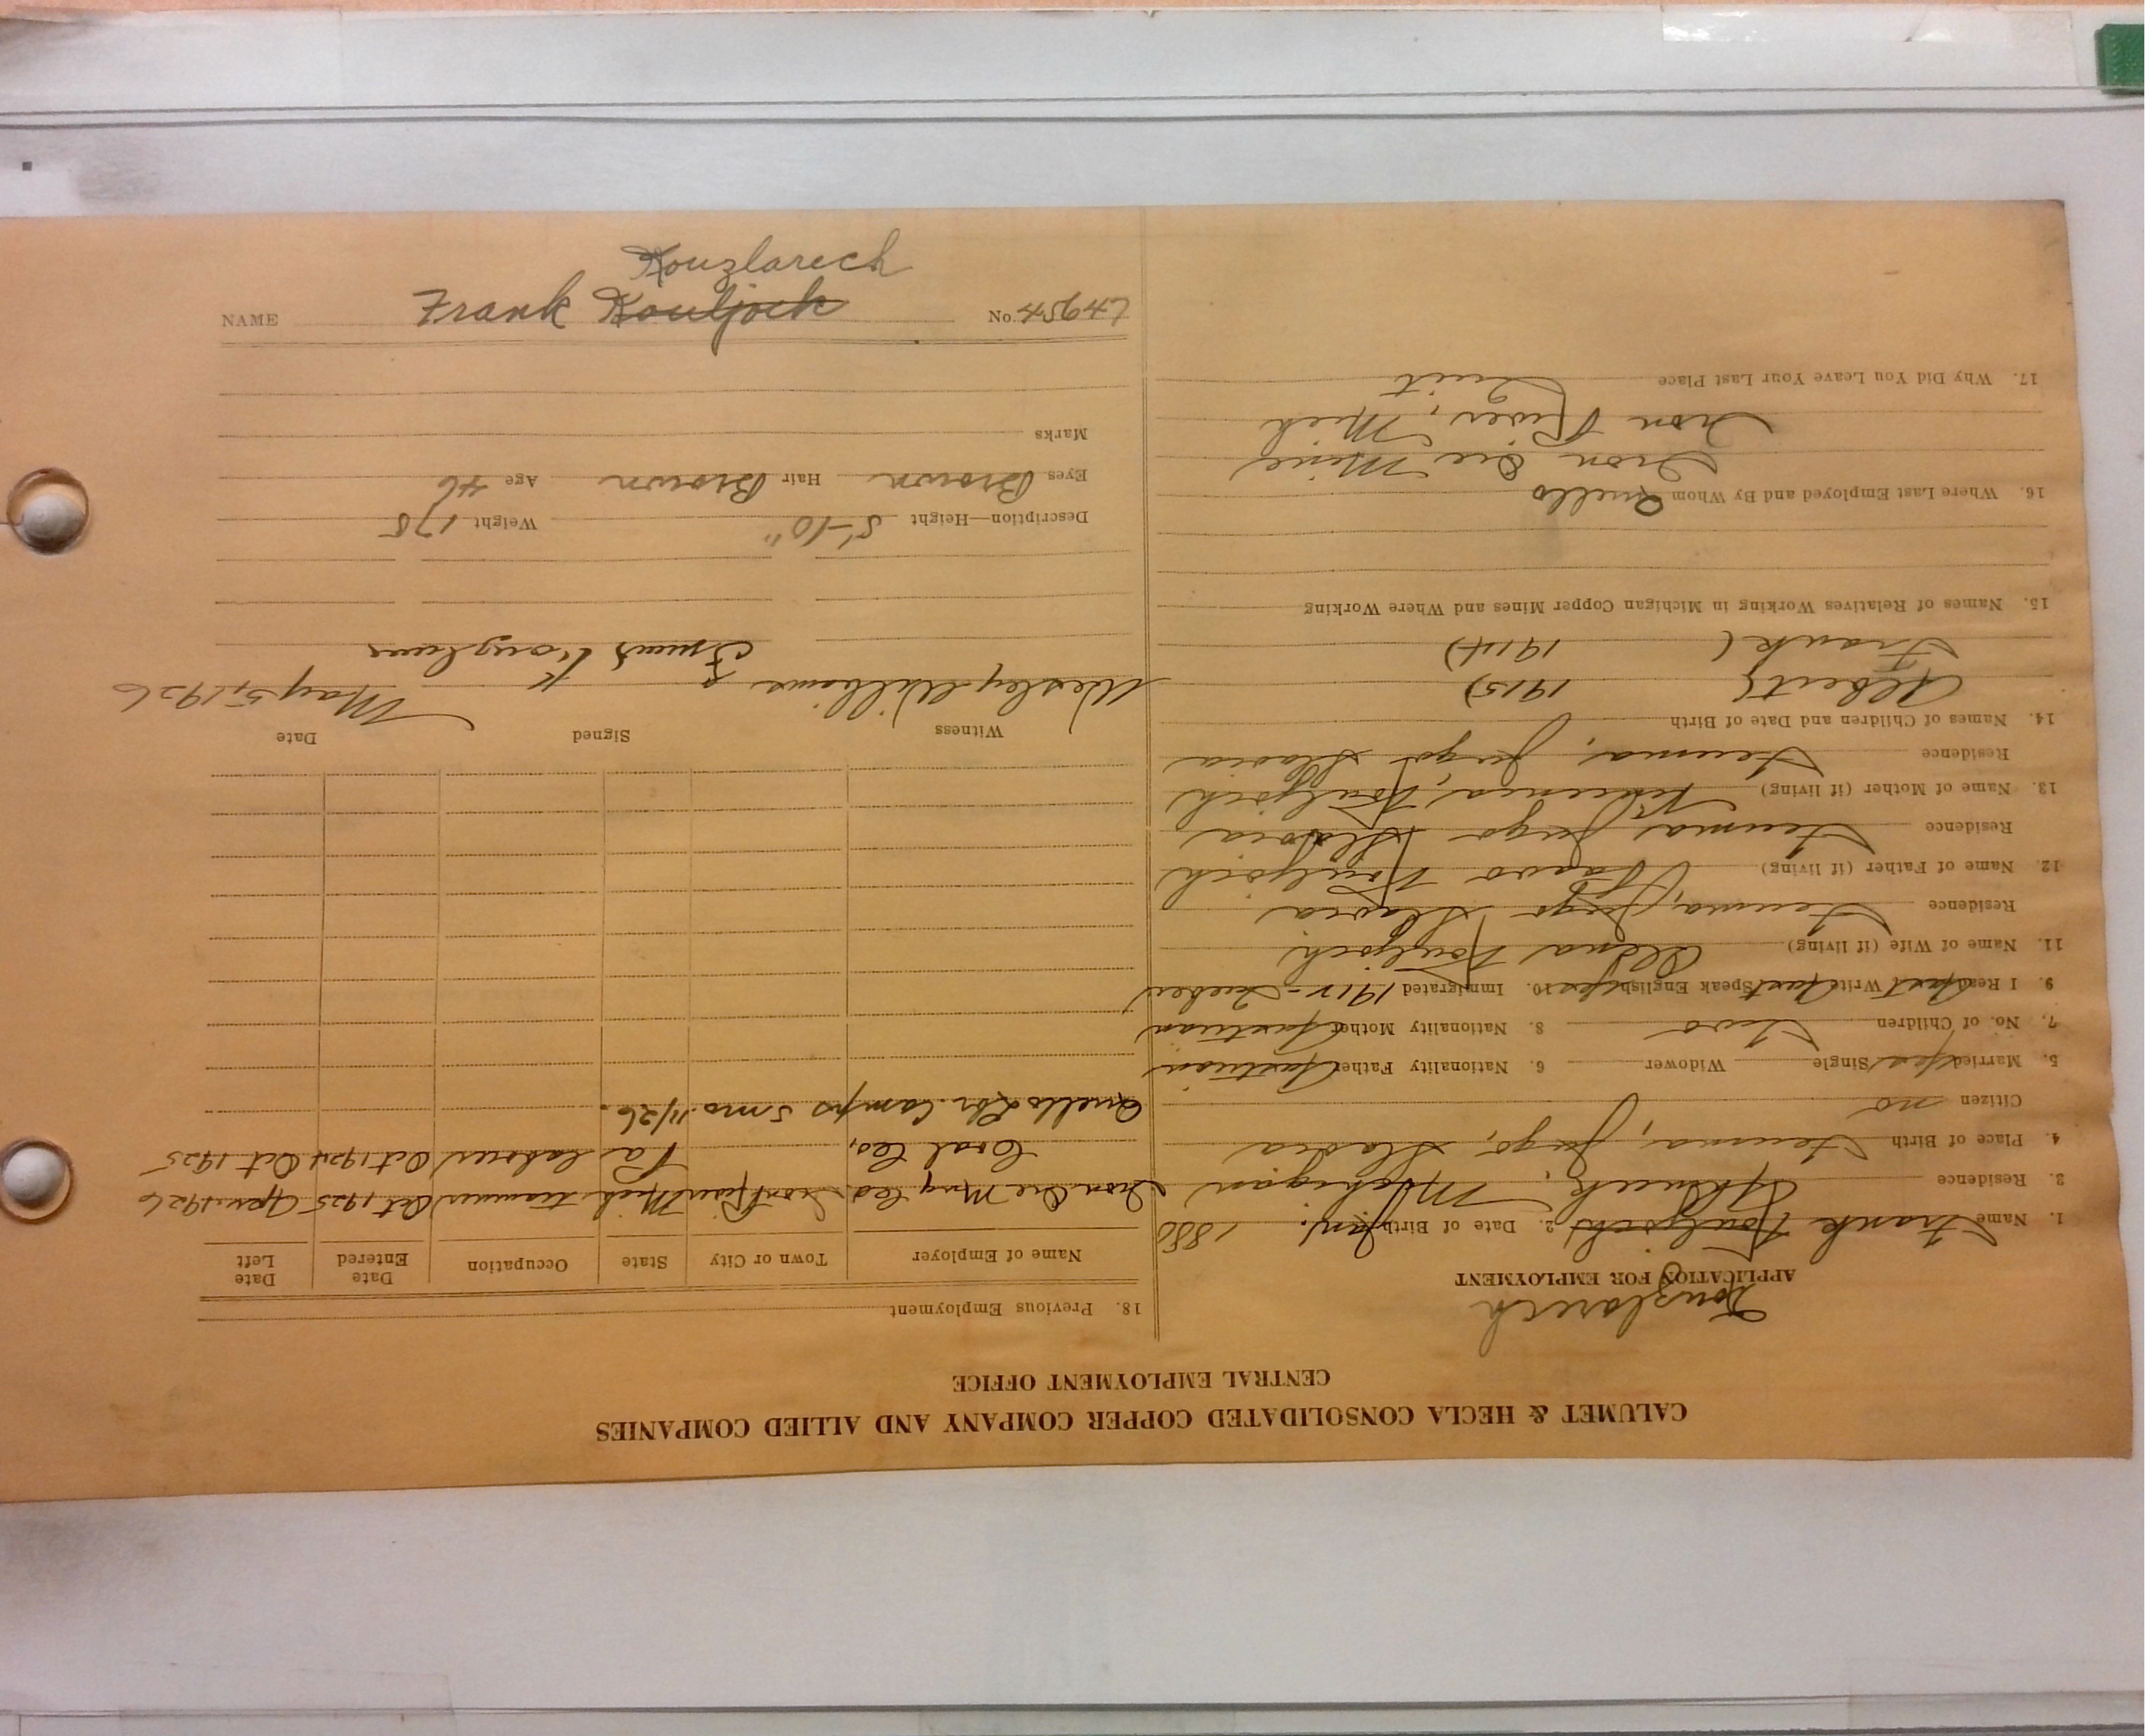 CALUMET & HECLA CONSOLIDATED COPPER COMPANY AND ALLIED COMPANIES
CENTRAL EMPLOYMENT OFFICE
Kouzlarech
APPLICATION FOR EMPLOYMENT
1. Name Frank Kouljock 2. Date of Birth Jan. 1880
3. Residence Ahmeek, Michigan
4. Place of Birth Fiuma, Jugo, Slavia
Citizen no
5. Married yes Single Widower 6. Nationality Father Austrian
7. No. of Children Two 8. Nationality Mother Austrian
9. I Read Aust Write Aust Speak English yes 10. Immigrated 1912 - Quebec
11. Name of Wife (if living) Kouljoch
Residence Fiuma, Jugo Slavia
12. Name of Father (if living) Kouljoch
Residence Fiuma Jugo Slavia
13. Name of Mother (if living) Kouljoch
Residence Fiuma, Jugo Slavia
14. Names of Children and Date of Birth
Albert ( 1915)
Frank ( 1914)
15. Names of Relatives Working in Michigan Copper Mines and Where Working
16. Where Last Employed and By Whom Quello
Iron Ore Mine
Iron River, Mich
17. Why Did You Leave Your Last Place Quit
18. Previous Employment
Name of Employer Town or City State Occupation Date Entered Date Left
Iron Ore Mng Co. Iron River Mich trammer Oct 1925 Apr. 1926
Coal Co, Pa laborer Oct 1924 Oct 1925
Quello Lbr. Camps 5 mo. 11/26.
Witness Signed Date
Wesley Williams Frank May 5, 1926
Description—Height 5'-10" Weight 175
Eyes Brown Hair Brown Age 46
Marks
Kouzlarech
NAME Frank Kouljock No.